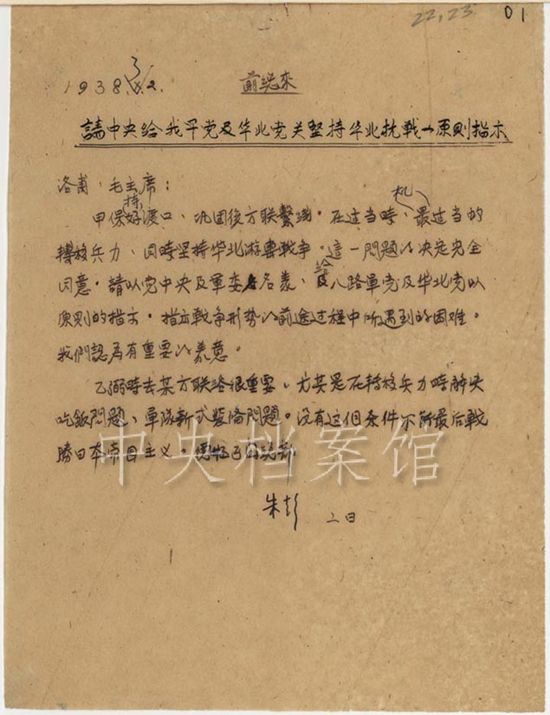 22,23 01
1938.3.2.
前总来
請中央给我平党及华北党关坚持华北抗战一原则指示
洛甫、毛主席：
甲保持好渡口、巩固後方联繫线。在过当時机、最过当的
轉移兵力、同時坚持华北游击戰争。這一問題的决定完全
同意。請以党中央及軍委名義、给八路軍党及华北党以
原則的指示。指示戰争形势的前途过程中所遇到的困难。
我們認為有重要的意意。
乙 時去某方联络很重要、尤其是在轉移兵力時解决
吃飯問題、軍隊新式装备問題。没有这個条件不能最后戰
勝日本帝国主义
朱彭 二日
中央档案馆